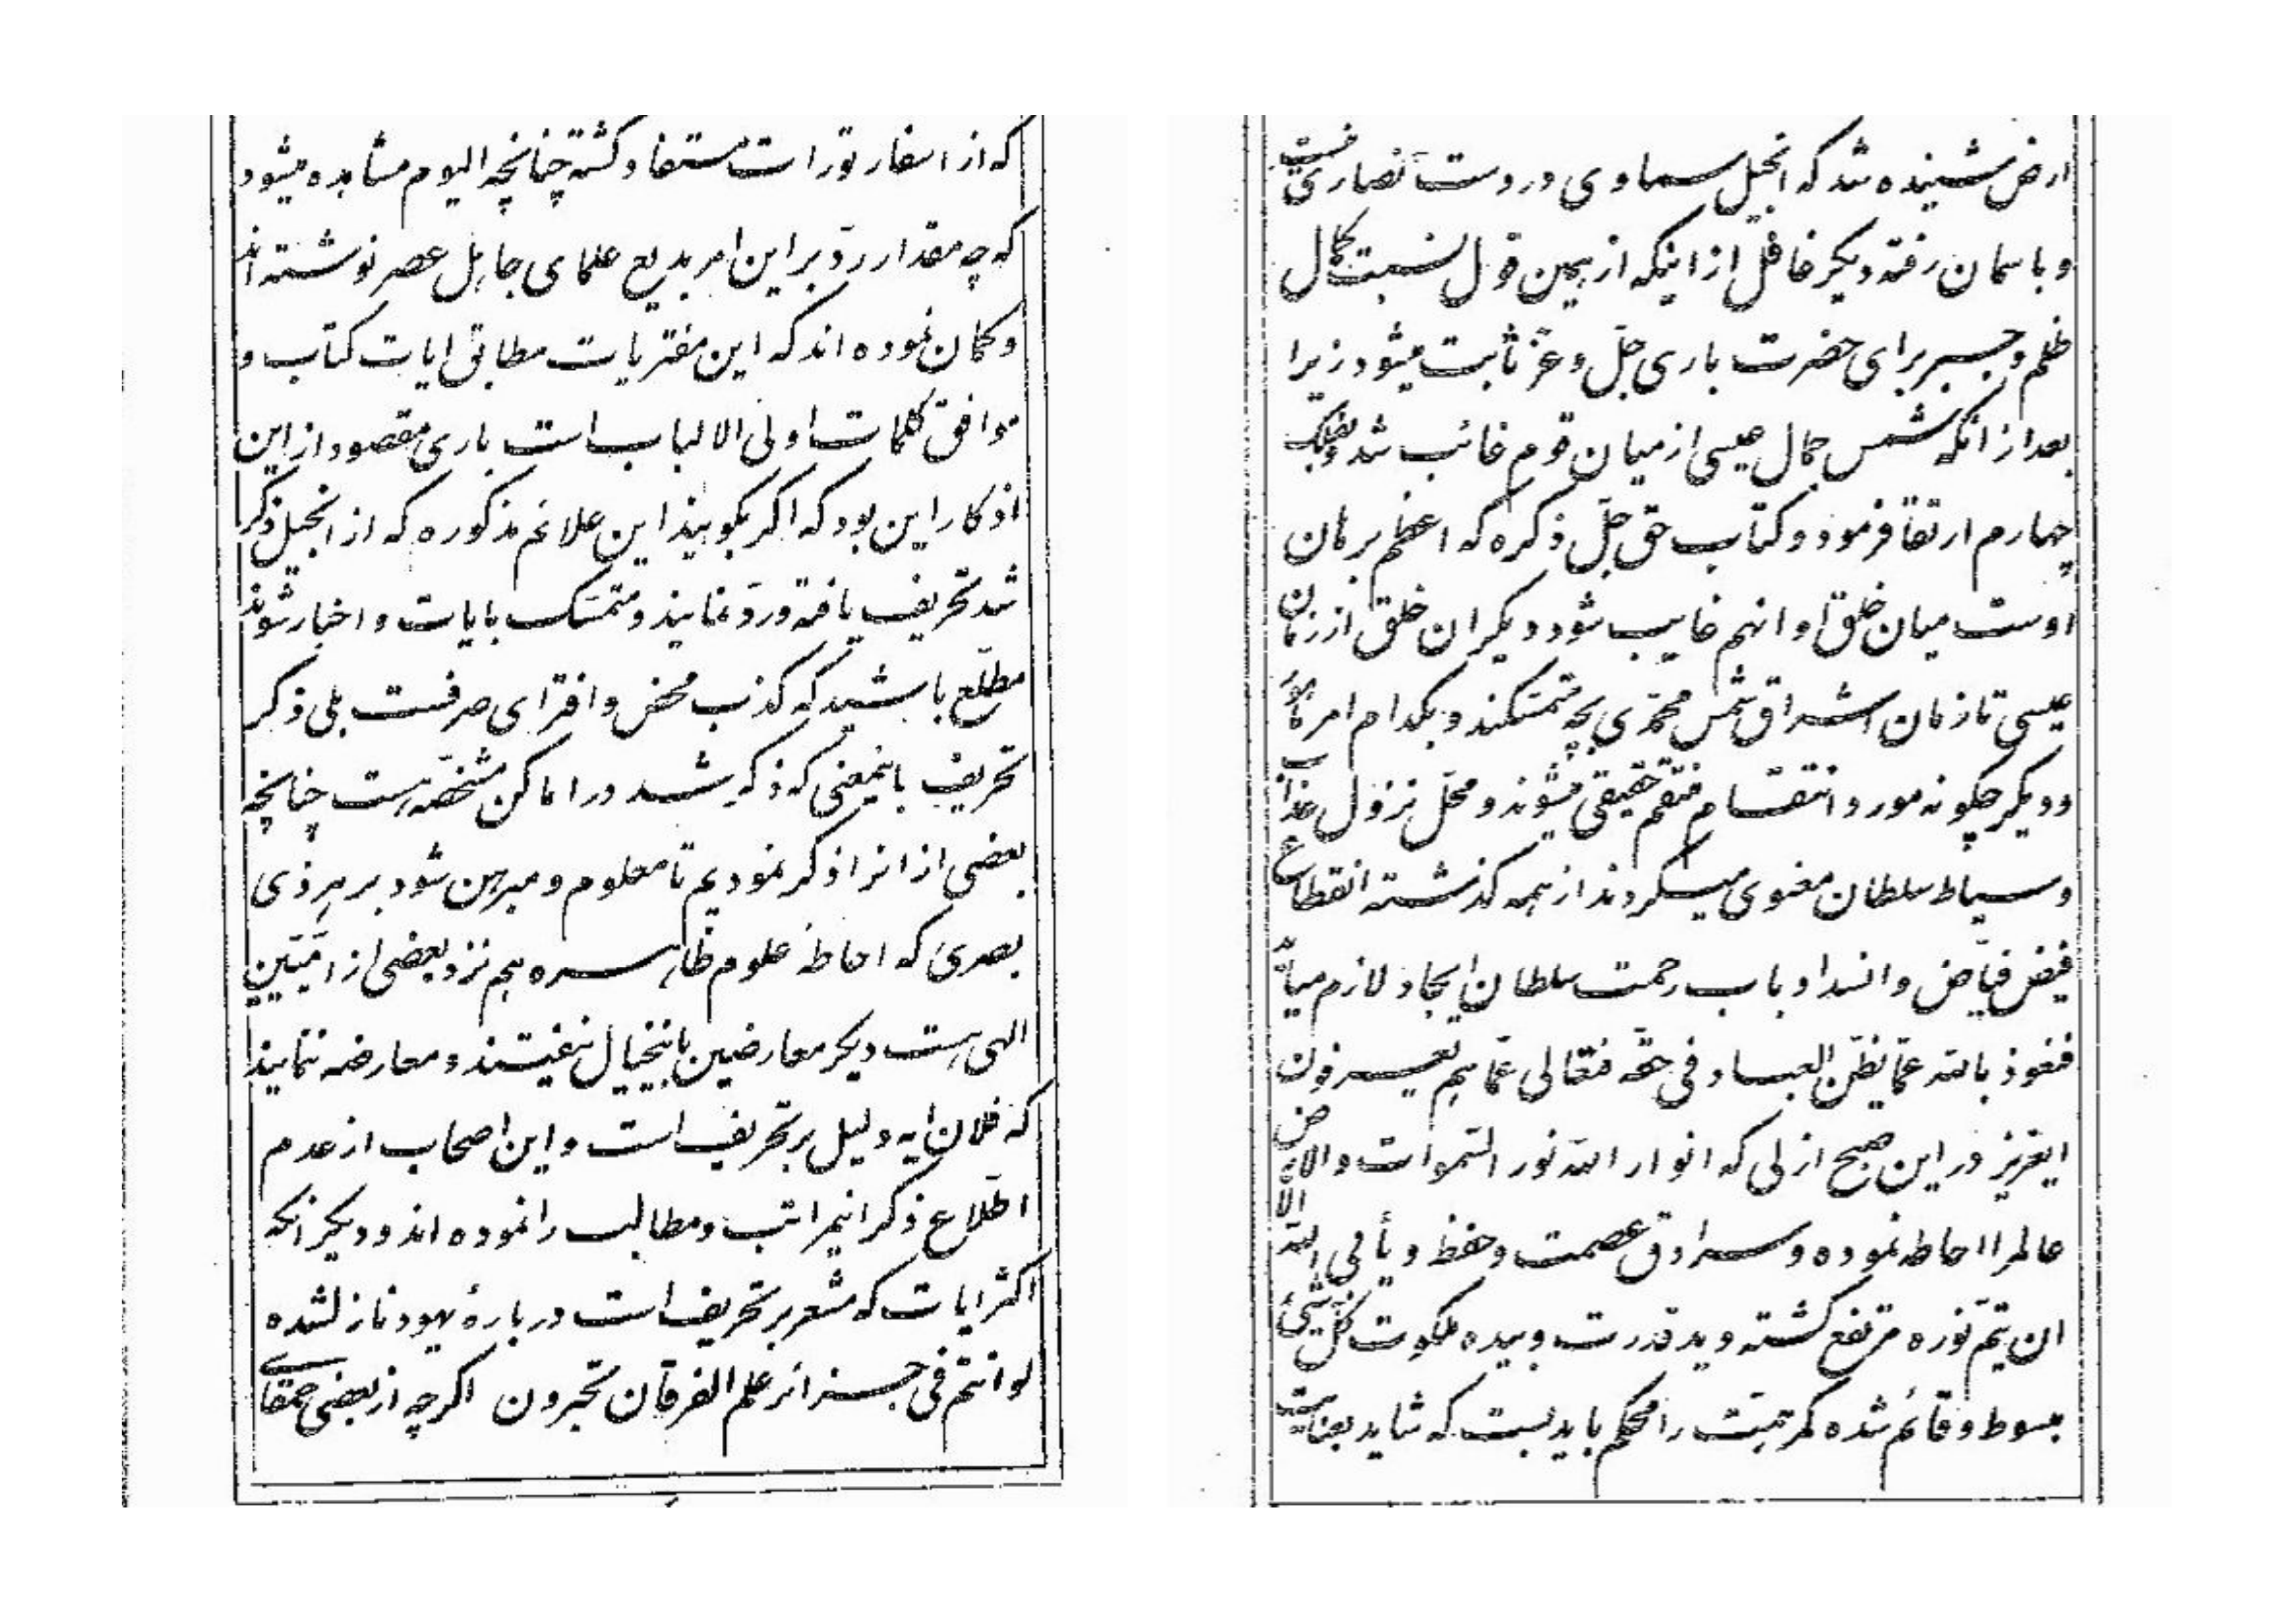 که از اسفار تورات مستفاد کشته چنانچه الیوم مشاهده میشود
که چه مقدار ردّ بر این امر بدیع علمای جاهل عصر نوشته اند
و کمان نموده اند که این مفتریات مطابق ایات کتاب و
موافق کلمات اولی الالباب است باری مقصود از این
اذکار این بود که اکر بکویند این علائم مذکوره که از انجیل ذکر
شد تحریف یافته و ردّ نمایند و متمسّک بایات و اخبار شوند
مطلّع باشید که کذب محض و افترای صرفست بلی ذکر
تحریف باینمعنی که ذکر شد در اماکن مشخّصه هست چنانچه
بعضی از انرا ذکر نمودیم تا معلوم و مبرهن شود بر هر ذی
بصری که احاطهٔ علوم ظاهره هم نزد بعضی از امّیّین
الهی هست دیکر معارضین باینخیال نیفتند و معارضه ننمایند
که فلان ایه دلیل بر تحریف است و این اصحاب از عدم
اطّلاع ذکر اینمراتب و مطالب را نموده اند و دیکر انکه
اکثر ایات که مشعر بر تحریف است دربارهٔ یهود نازلشده
لو انتم فی جزائر علم الفرقان تحبرون اکرچه از بعضی حمقای
ارض شنیده شد که انجیل سماوی در دست نصاری نیست
و باسمان رفته دیکر غافل از اینکه از همین قول نسبت کمال
ظلم و جبر برای حضرت باری جلّ و عزّ ثابت میشود زیرا
بعد از انکه شمس جمال عیسی از میان قوم غائب شد و بفلک
چهارم ارتقا فرمود و کتاب حق جلّ ذکره که اعظم برهان
اوست میان خلق او انهم غایب شود دیکر ان خلق از زمان
عیسی تا زمان اشراق شمس محمّدی بچه متمسّکند و بکدام امر مأمور
و دیکر چکونه مورد انتقام منتقم حقیقی میشوند و محلّ نزول عذاب
و سیاط سلطان معنوی میکردند از همه کذشته انقطاع
فیض فیّاض و انسداد باب رحمت سلطان ایجاد لازم میآید
فنعوذ بالله عمّا یظنّ العباد فی حقّه فتعالی عمّا هم یعرفون
ایعزیز در این صبح ازلی که انوار الله نور السّموات والارض
عالمرا احاطه نموده و سرادق عصمت و حفظ و یأبی الله الّا
ان یتمّ نوره مرتفع کشته و ید قدرت و بیده ملکوت کلّ شیئ
مبسوط و قائم شده کمر همّت را محکم باید بست که شاید بعنایت